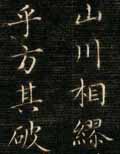 山川相繆
乎方其破